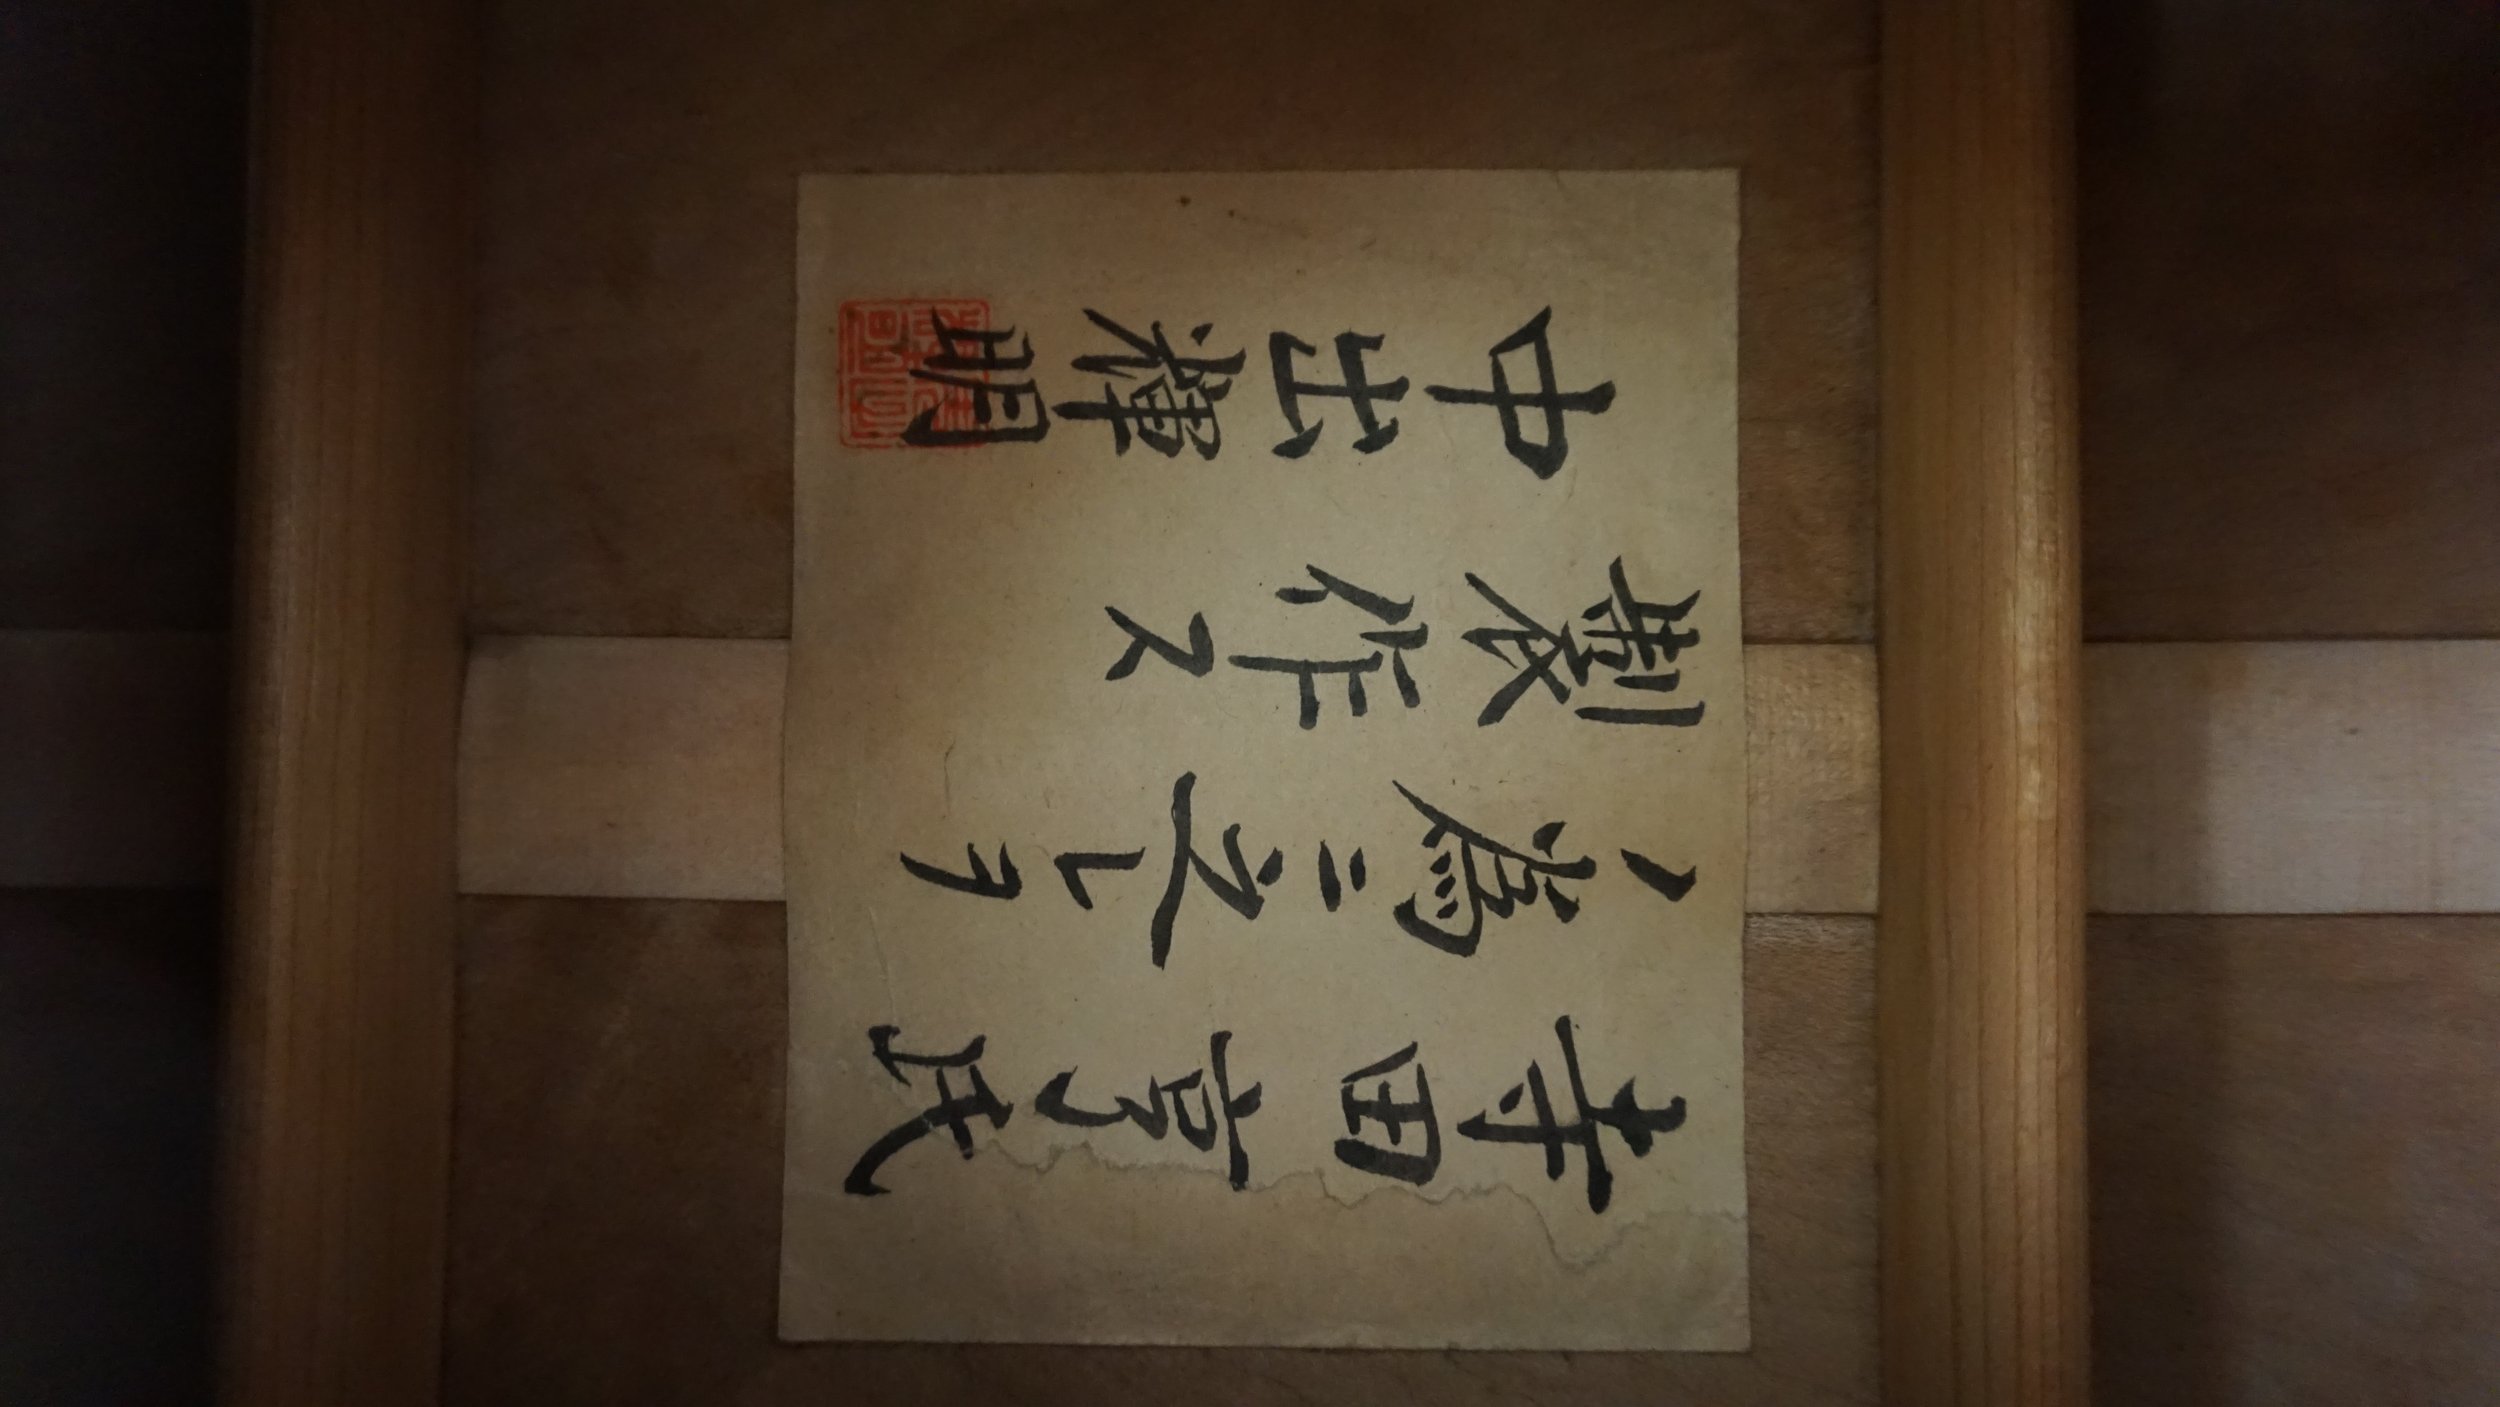 幸田亨氏
ノ為ニ之レヲ
製作ス
中出輝明